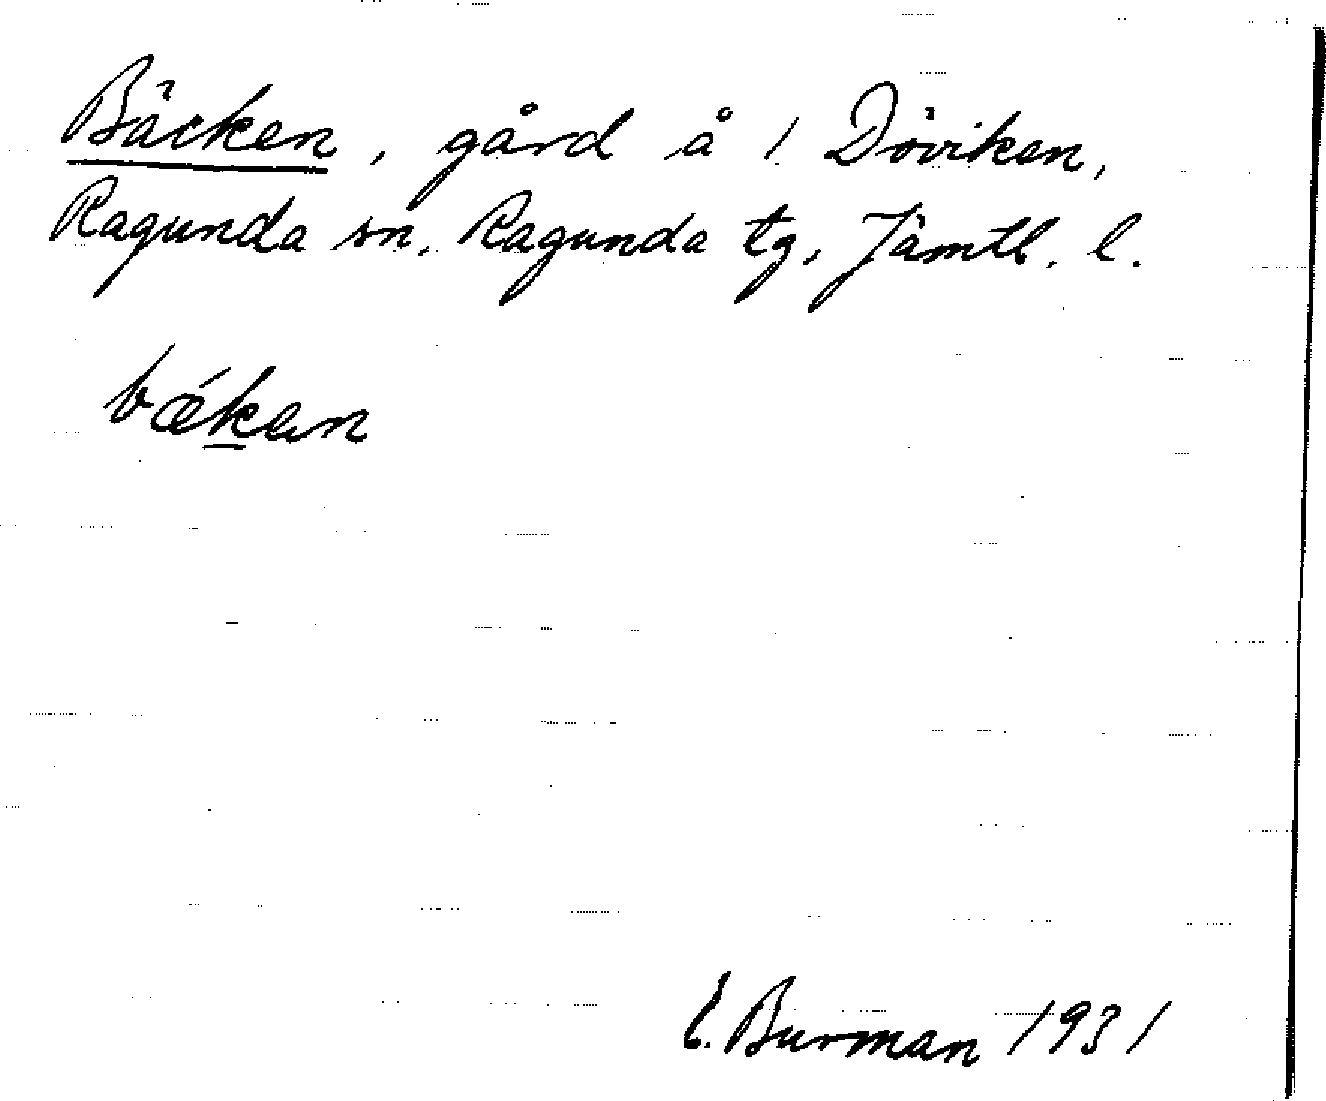 Bäcken, gård å 1 Döviken,
Ragunda sn, Ragunda tg, Jämtl. l.
bǽkan
E. Burman 1931